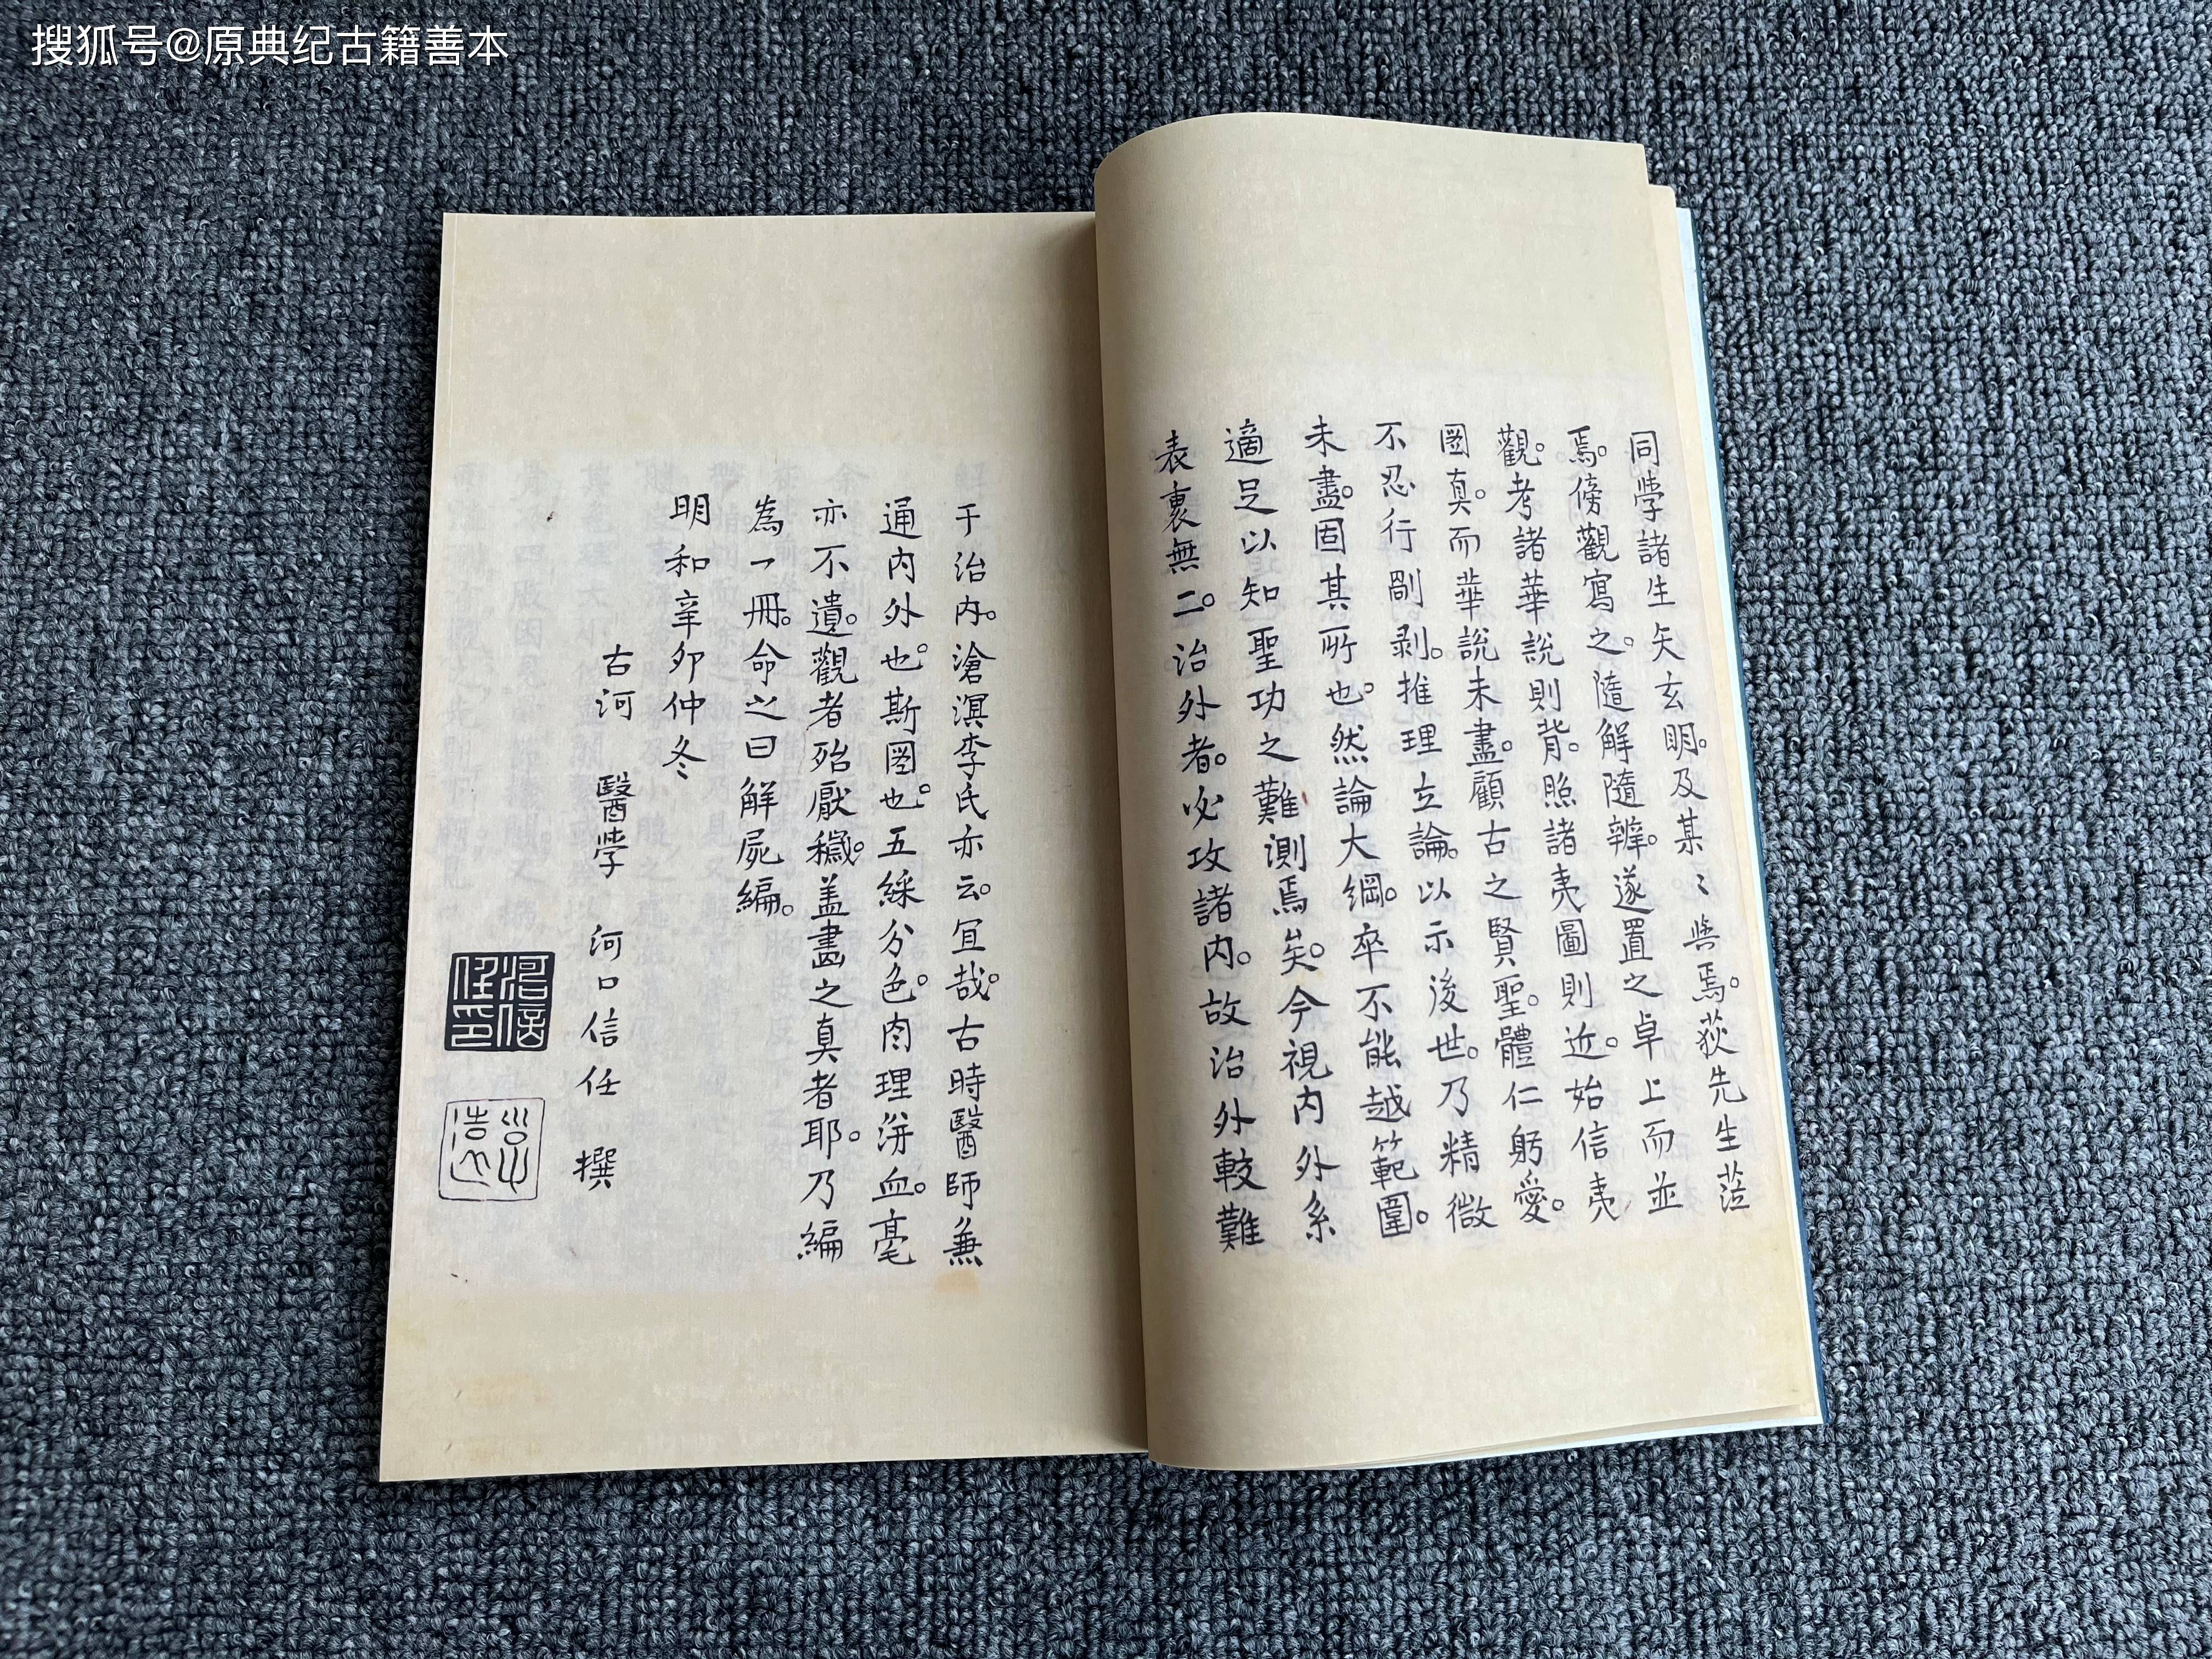 搜狐号@原典纪古籍善本
同學諸生矢玄明。及某〻與焉。荻先生蒞
焉。傍觀寫之。隨解隨辨。遂置之卓上而並
觀。考諸華説則背。照諸夷圖則近。始信夷
圖真。而華説未盡。顧古之賢聖。體仁躬愛。
不忍行剮剥。推理立論。以示後世。乃精微
未盡。固其所也。然論大綱。卒不能越範圍。
適足以知聖功之難測焉矣。今視内外系
表裏無二。治外者。必攻諸内。故治外較難
于治内。滄溟李氏亦云。宜哉。古時醫師兼
通内外也。斯圖也。五綵分色。肉理洴血。毫
亦不遺。觀者殆厭穢。盖畫之真者耶。乃編
為一冊。命之曰解屍編。
明和辛卯仲冬
古河 醫學 河口信任 撰